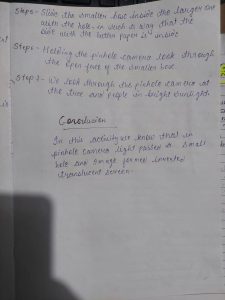 Step5- Slide the smaller box inside the larger one
with the hole in such a way that the
side with the butter paper is inside
Step6- Holding the pinhole camera look through
the open face of the smaller box.
Step 7- We look through the pinhole camera at
the tree and people in bright sunlight
Conclusion
In this activity we know that in
pinhole camera light passes to small
hole and image formed inverted
translucent screen.